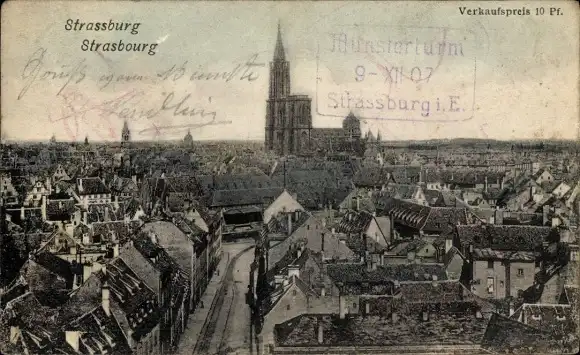 Strassburg
Strasbourg
Verkaufspreis 10 Pf.
Münsterturm
9-XII 07
Strassburg i. E.
Gruß vom Münster